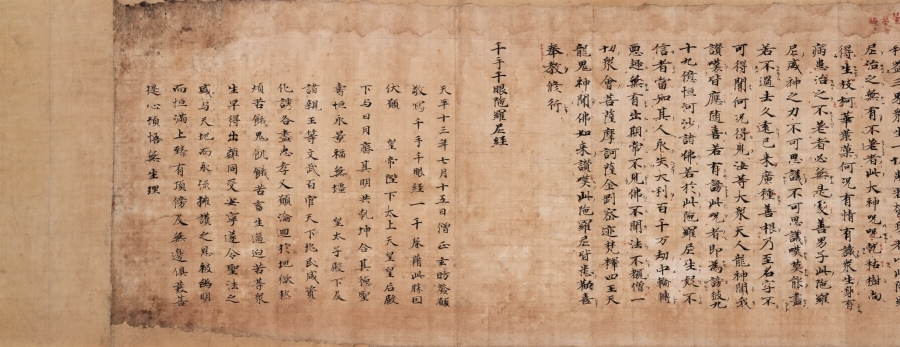 尼治之無有不差者此大神呪呪乾枯樹尚
得生枝柯華葉何況有情有識衆生身有
病患治之不差者必無是處善男子此陁羅
尼威神之力不可思議不可思議歎莫能盡
若不過去久遠已來廣種善根乃至名字不
可得聞何況得見汝等大衆天人龍神聞我
讃嘆皆應随喜若有謗此呪者即為謗彼九
十九億恒河沙諸佛若於此陁羅尼生疑不
信者當知其人永失大利百千万劫中輪轉
惡趣無有出期常不見佛不聞法不覩僧一
切衆會菩薩摩訶薩金剛密迹梵釋四王天
龍鬼神聞佛如来讃嘆此陁羅尼皆悉歡喜
奉教修行
千手千眼陁羅尼経
天平十三年七月十五日僧正玄昉發願
敬寫千手千眼経一千巻藉此勝因
伏願 皇帝陛下太上天皇皇后殿
下与日月齊其明共乹坤合其徳聖
壽恒永景福無壃 皇太子殿下及
諸親王等文武百官天下兆民咸資
化誘各盡忠孝又願淪廻於地獄熬
煩苦餓鬼飢餓苦畜生逼迫苦等衆
生早得出離同受安寧遂令聖法之
盛与天地而永流擁護之恩被幽明
而恒滿上臻有頂傍及無邊俱發菩
提心頓悟無生理